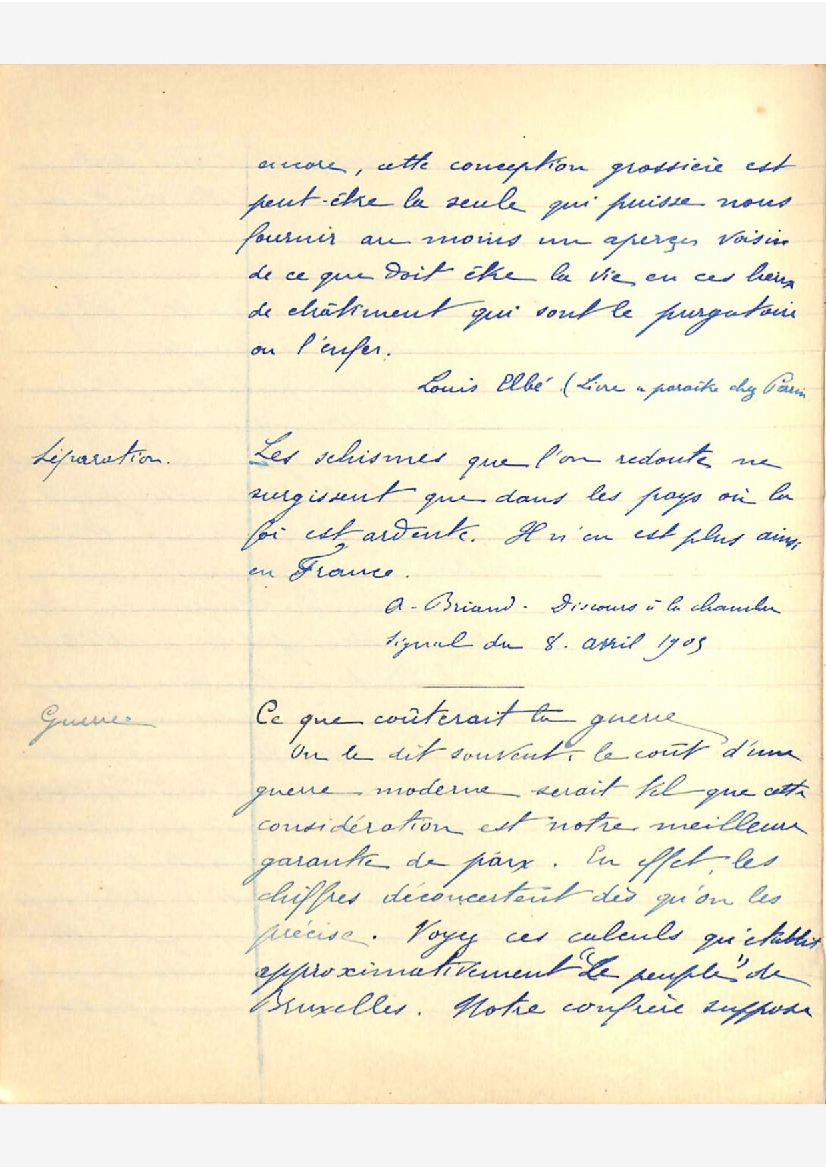 encore, cette conception grossière est
peut-être la seule qui puisse nous
fournir au moins un aperçu voisin
de ce que doit être la vie en ces lieux
de châtiment qui sont le purgatoire
ou l'enfer.
Louis Elbé (Livre à paraître chez Perrin
Séparation.
Les schismes que l'on redoute ne
surgissent que dans les pays où la
foi est ardente. Il n'en est plus ainsi
en France.
A. Briand. Discours à la chambre
Signal du 8. avril 1905
Guerre
Ce que coûterait la guerre
On le dit souvent : le coût d'une
guerre moderne serait tel que cette
considération est notre meilleure
garantie de paix. En effet, les
chiffres déconcertent dès qu'on les
précise. Voyez ces calculs qu'établit
approximativement "Le peuple" de
Bruxelles. Notre confrère suppose